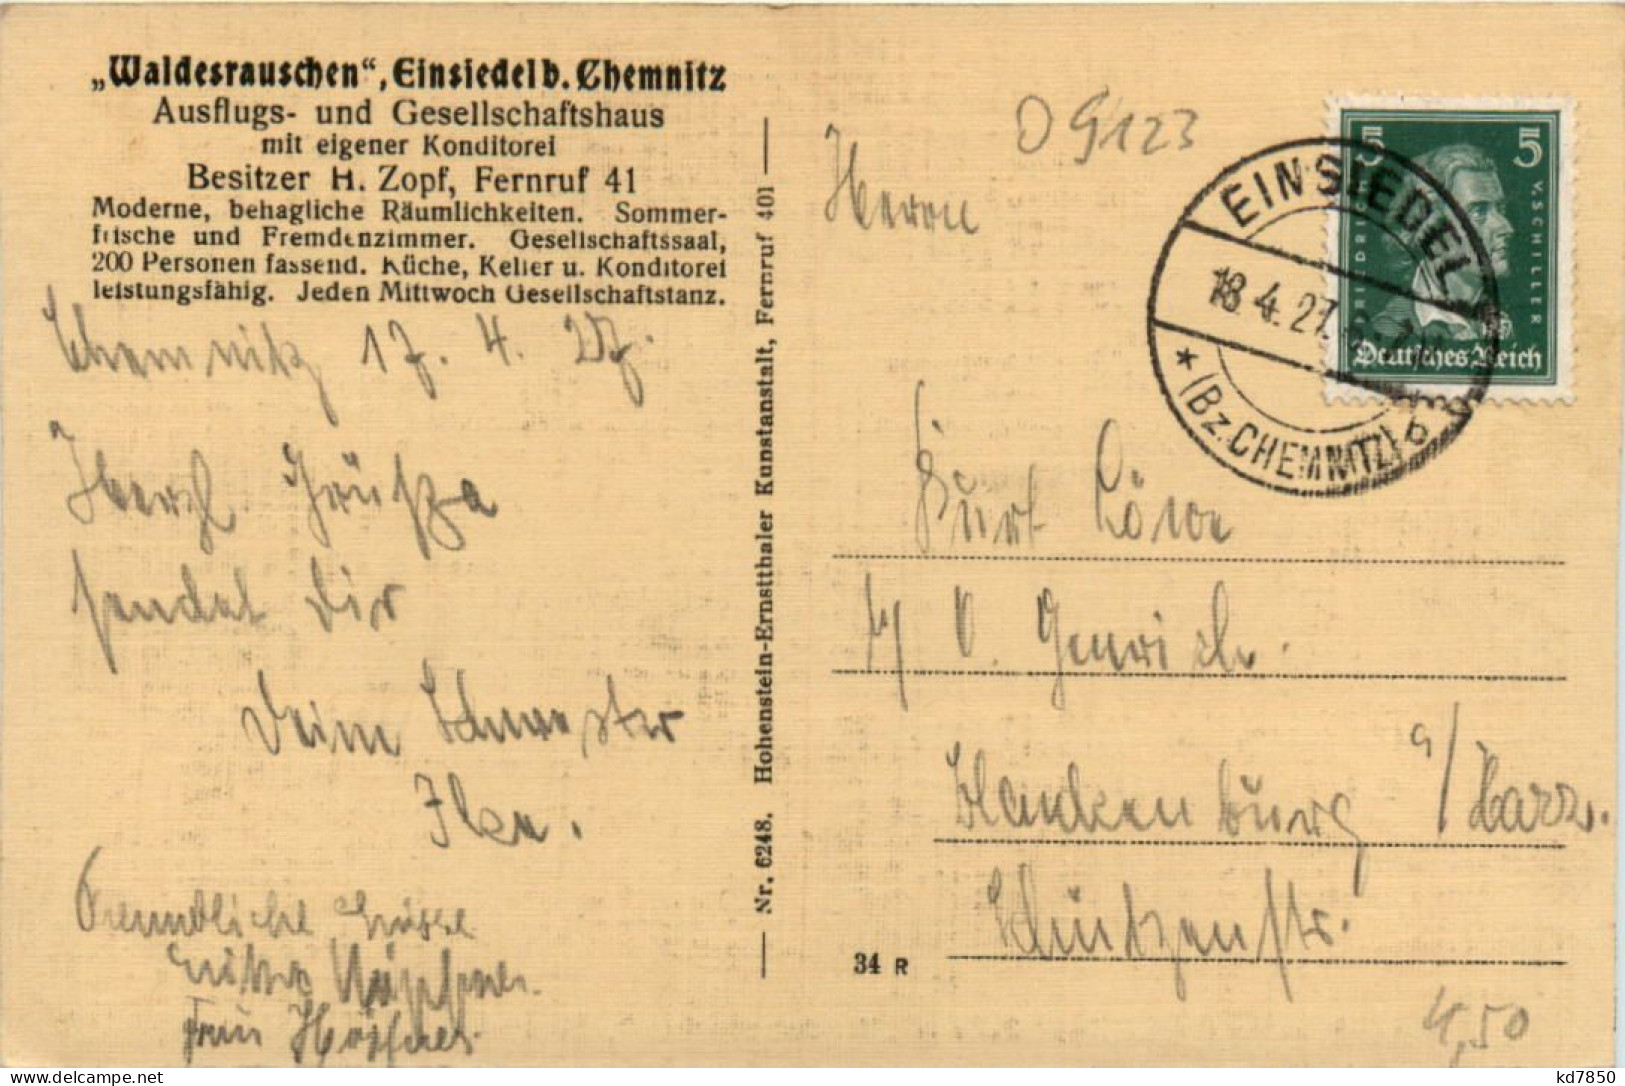 „Waldesrauschen“, Einsiedel b. Chemnitz
Ausflugs- und Gesellschaftshaus
mit eigener Konditorei
Besitzer H. Zopf, Fernruf 41
Moderne, behagliche Räumlichkeiten. Sommer-
frische und Fremdenzimmer. Gesellschaftssaal,
200 Personen fassend. Küche, Keller u. Konditorei
leistungsfähig. Jeden Mittwoch Gesellschaftstanz.
Chemnitz 17. 4. 27.
Herzl. Grüße
sendet Dir
Deine Schwester
Ilse.
Freundliche Grüsse
Frau
Nr. 6248. Hohenstein-Ernstthaler Kunstanstalt, Fernruf 401
34 R
09123
Herrn
Kurt Löwe
Blankenburg a/Harz.
Schützenstr.
4,50
EINSIEDEL
18.4.27.
* (Bz. CHEMNITZ) b
5 5
FRIEDRICH V. SCHILLER
Deutsches Reich
kd7850